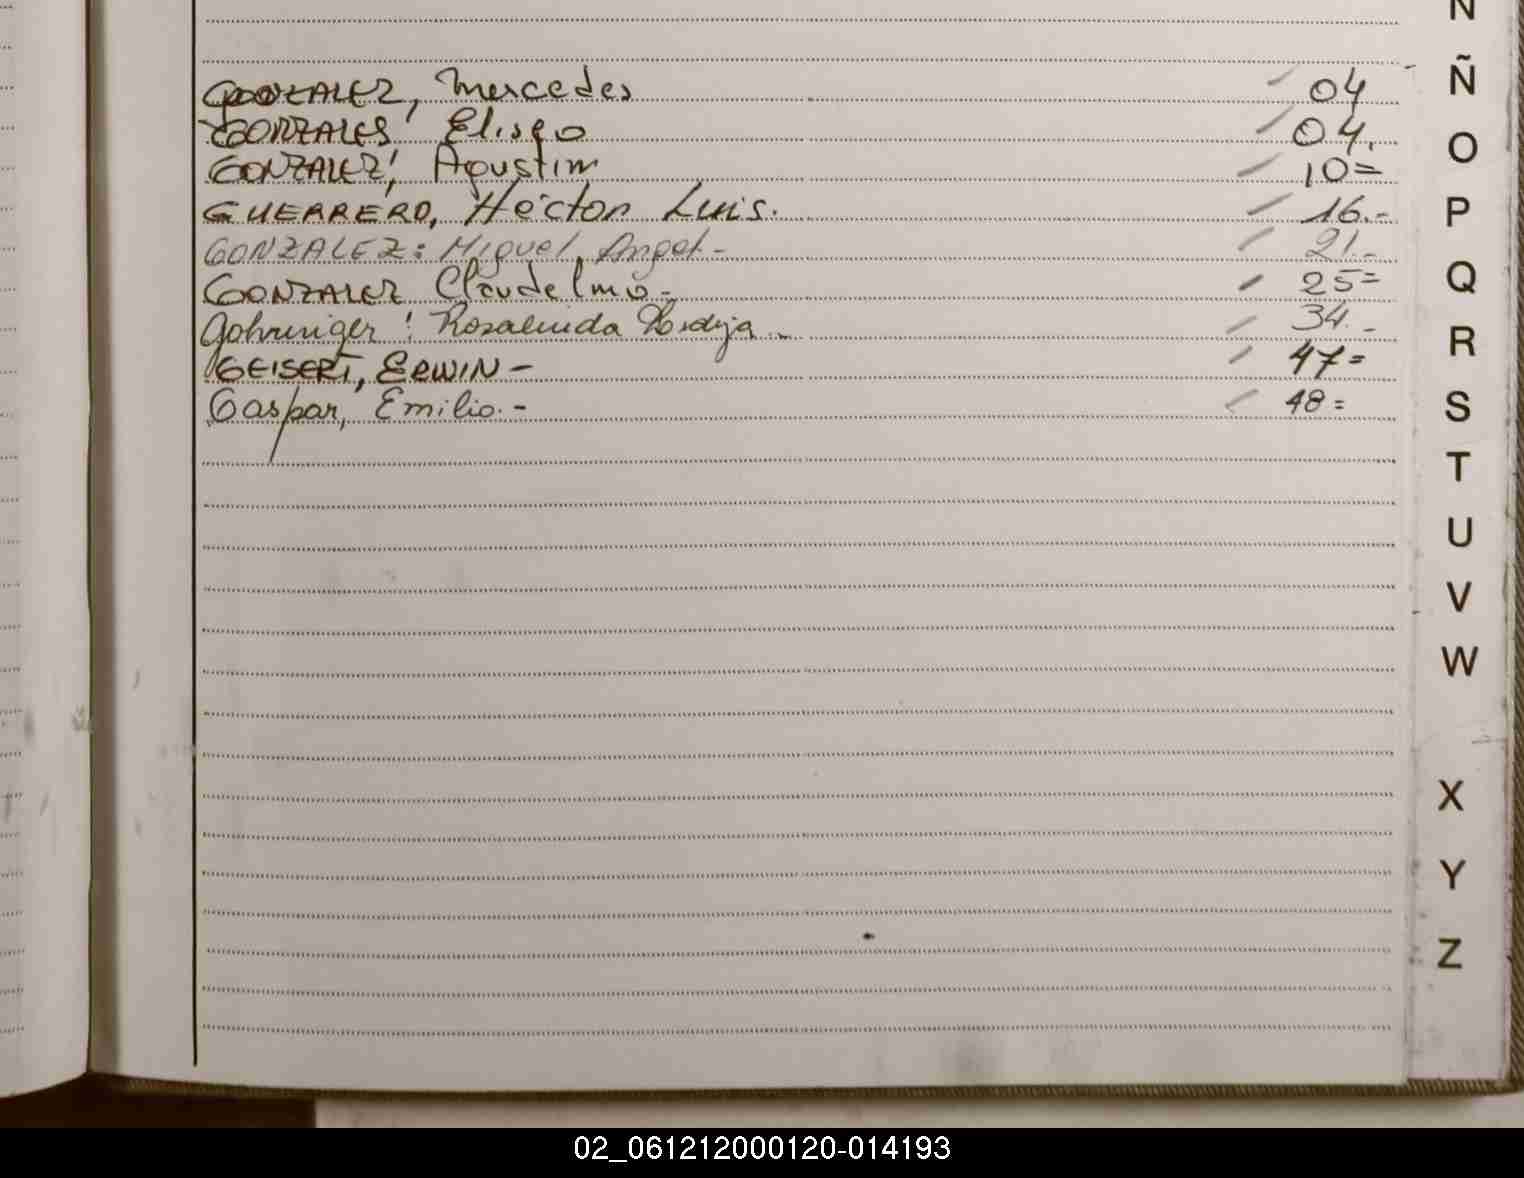 N
GONZALEZ, Mercedes 04 Ñ
GONZALES, Eliseo 04. O
GONZALEZ, Agustin 10=
GUERRERO, Héctor Luis. 16.- P
GONZALEZ: Miguel Angel- 21.-
GONZALEZ Claudelmo- 25= Q
Gohringer: Rosalinda 34.- R
GEISERT, ERWIN- 47=
Gaspar, Emilio.- 48= S
T
U
V
W
X
Y
Z
02_061212000120-014193